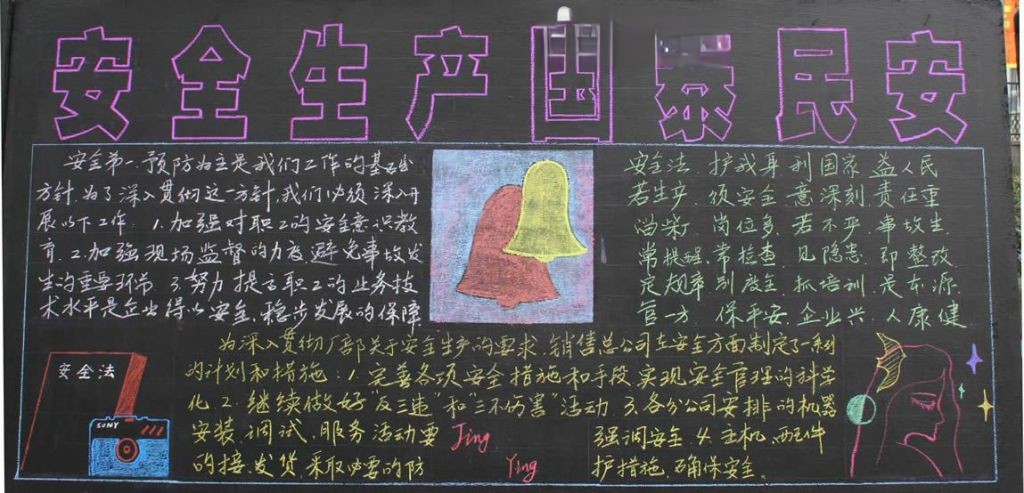 安全生产国泰民安
安全第一 预防为主是我们工作的基础
方针,为了深入贯彻这一方针,我们必须深入开
展以下工作: 1.加强对职工的安全意识教
育.2.加强现场监督的力度避免事故发
生的重要环节.3.努力提高职工的业务技
术水平是企业得以安全、稳步发展的保障
安全法 护我身 利国家 益人民
若生产 须安全 意深刻 责任重
岗位多 若不严 事故生
常提醒 常检查 见隐患 即整改
定规章 别废主 抓培训 是本源
官一方 保平安 企业兴 人康健
为深入贯彻厂部关于安全生产的要求,销售总公司在安全方面制定了一系列
的计划和措施:1.完善各项安全措施和手段,实现安全管理的科学
化 2.继续做好"反三违"和"三不伤害"活动 3.各分公司安排的机器
安装、调试、服务活动要 强调安全 4.主机、配件
的接、发货,采取必要的防 护措施,确保安全。
Jing
Ying
安全法
SONY